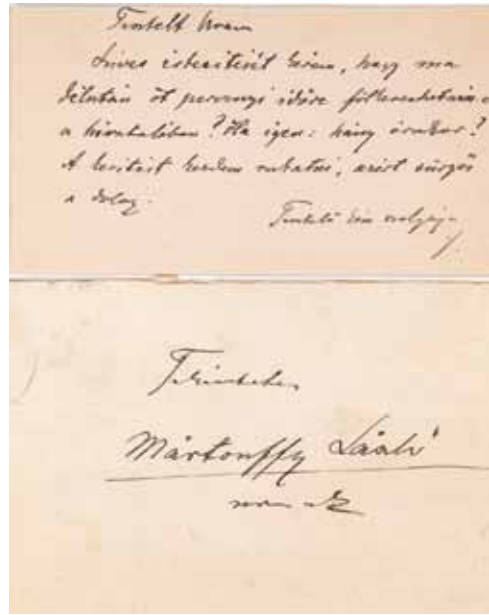 Tisztelt Uram
Szives értesitését kérem, hogy ma
délután öt percznyi időre fölkereshetném-e
a hivatalában? Ha igen: hány órakor?
A kezdem rakatni, azért sürgős
a dolog.
Tisztelő kész szolgája
Tekintetes
Mártonffy László
urnak